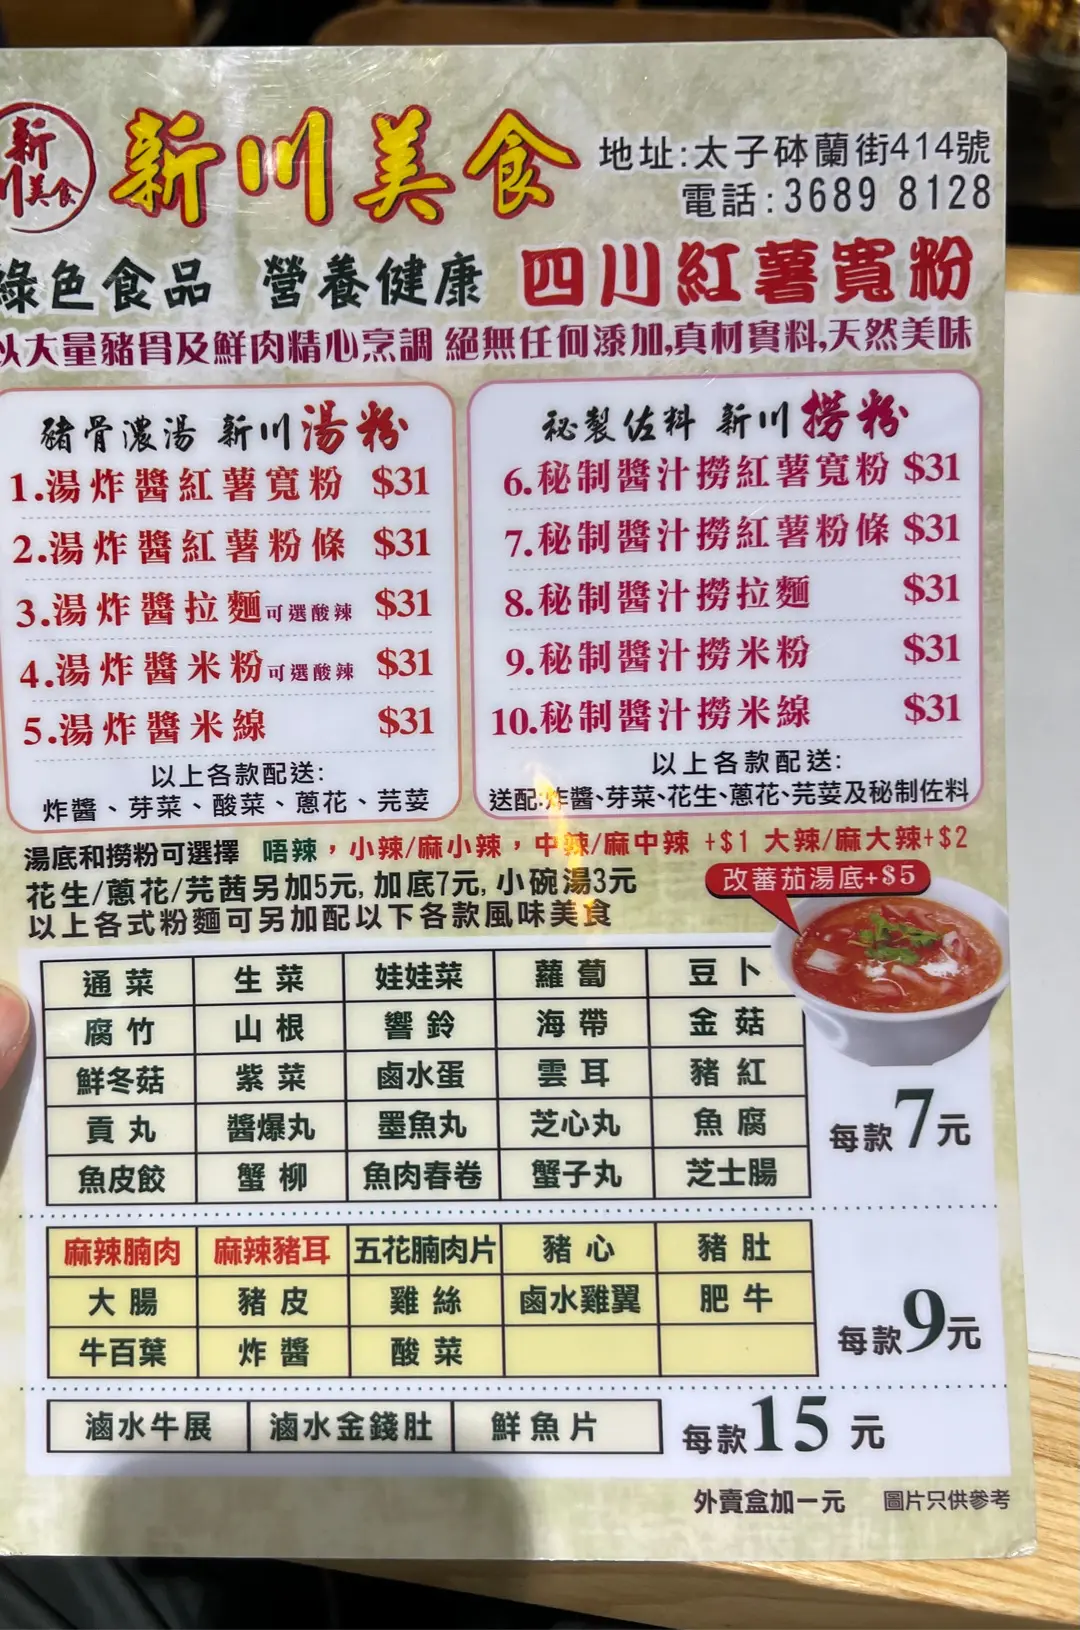 新川美食
新川美食
地址:太子砵蘭街414號
電話:3689 8128
綠色食品 營養健康 四川紅薯寬粉
以大量豬骨及鮮肉精心烹調 絕無任何添加,真材實料,天然美味
豬骨濃湯 新川湯粉
1.湯炸醬紅薯寬粉 $31
2.湯炸醬紅薯粉條 $31
3.湯炸醬拉麵可選酸辣 $31
4.湯炸醬米粉可選酸辣 $31
5.湯炸醬米線 $31
以上各款配送:
炸醬、芽菜、酸菜、蔥花、芫荽
秘製佐料 新川撈粉
6.秘制醬汁撈紅薯寬粉 $31
7.秘制醬汁撈紅薯粉條 $31
8.秘制醬汁撈拉麵 $31
9.秘制醬汁撈米粉 $31
10.秘制醬汁撈米線 $31
以上各款配送:
送配:炸醬、芽菜、花生、蔥花、芫荽及秘制佐料
湯底和撈粉可選擇 唔辣，小辣/麻小辣，中辣/麻中辣 +$1 大辣/麻大辣+$2
花生/蔥花/芫茜另加5元, 加底7元, 小碗湯3元
以上各式粉麵可另加配以下各款風味美食
改蕃茄湯底+$5
通菜 生菜 娃娃菜 蘿蔔 豆卜
腐竹 山根 響鈴 海帶 金菇
鮮冬菇 紫菜 鹵水蛋 雲耳 豬紅
貢丸 醬爆丸 墨魚丸 芝心丸 魚腐
魚皮餃 蟹柳 魚肉春卷 蟹子丸 芝士腸
每款7元
麻辣腩肉 麻辣豬耳 五花腩肉片 豬心 豬肚
大腸 豬皮 雞絲 鹵水雞翼 肥牛
牛百葉 炸醬 酸菜
每款9元
滷水牛展 滷水金錢肚 鮮魚片
每款15元
外賣盒加一元 圖片只供參考